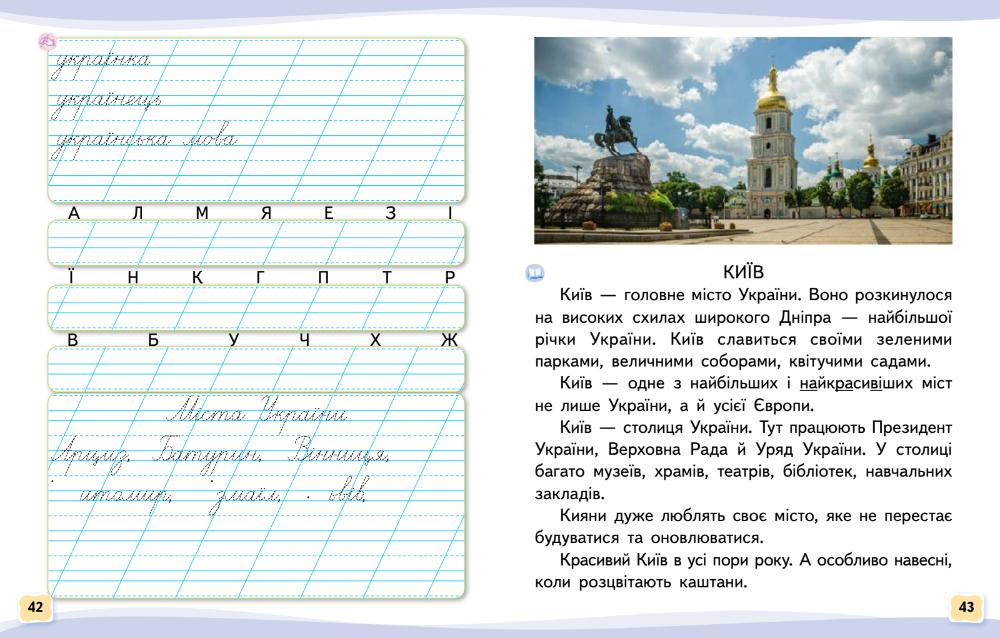 українка
українець
українська мова
А Л М Я Е З І
Ї Н К Г П Т Р
В Б У Ч Х Ж
Міста України
Арциз, Батурин, Вінниця,
итомир, змаїл, ьвів,
42
КИЇВ
Київ — головне місто України. Воно розкинулося
на високих схилах широкого Дніпра — найбільшої
річки України. Київ славиться своїми зеленими
парками, величними соборами, квітучими садами.
Київ — одне з найбільших і найкрасивіших міст
не лише України, а й усієї Європи.
Київ — столиця України. Тут працюють Президент
України, Верховна Рада й Уряд України. У столиці
багато музеїв, храмів, театрів, бібліотек, навчальних
закладів.
Кияни дуже люблять своє місто, яке не перестає
будуватися та оновлюватися.
Красивий Київ в усі пори року. А особливо навесні,
коли розцвітають каштани.
43